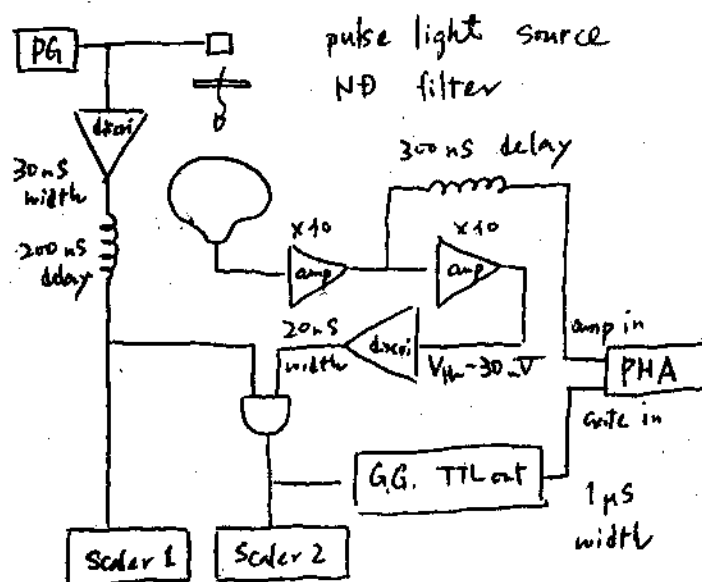 PG
pulse light source
ND filter
discri
30 nS
width
200 nS
delay
300 nS delay
×10
amp
×10
amp
20 nS
width
discri
Vth -30mV
amp in
PHA
Gate in
G.G. TTL out
1 μS
width
Scaler 1
Scaler 2